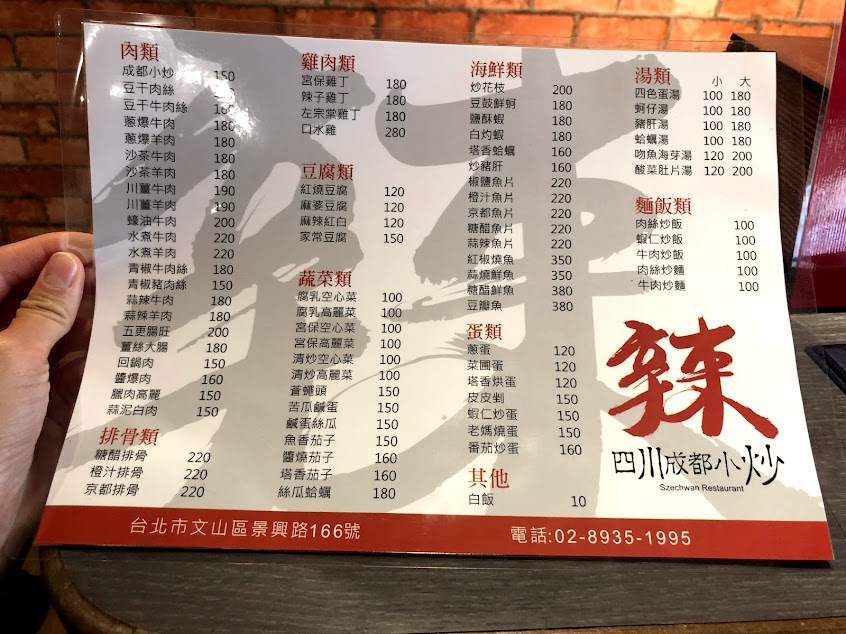 肉類
成都小炒 150
豆干肉絲 150
豆干牛肉絲 180
蔥爆牛肉 180
蔥爆羊肉 180
沙茶牛肉 180
沙茶羊肉 180
川薑牛肉 190
川薑羊肉 190
蠔油牛肉 200
水煮牛肉 220
水煮羊肉 220
青椒牛肉絲 180
青椒豬肉絲 150
蒜辣牛肉 180
蒜辣羊肉 180
五更腸旺 200
薑絲大腸 180
回鍋肉 150
醬爆肉 160
臘肉高麗 150
蒜泥白肉 150
排骨類
糖醋排骨 220
橙汁排骨 220
京都排骨 220
雞肉類
宮保雞丁 180
辣子雞丁 180
左宗棠雞丁 180
口水雞 280
豆腐類
紅燒豆腐 120
麻婆豆腐 120
麻辣紅白 120
家常豆腐 150
蔬菜類
腐乳空心菜 100
腐乳高麗菜 100
宮保空心菜 100
宮保高麗菜 100
清炒空心菜 100
清炒高麗菜 100
蒼蠅頭 150
苦瓜鹹蛋 150
鹹蛋絲瓜 150
魚香茄子 150
醬燒茄子 160
塔香茄子 160
絲瓜蛤蠣 180
海鮮類
炒花枝 200
豆鼓鮮蚵 180
鹽酥蝦 180
白灼蝦 180
塔香蛤蠣 160
炒豬肝 160
椒鹽魚片 220
橙汁魚片 220
京都魚片 220
糖醋魚片 220
蒜辣魚片 220
紅椒燒魚 350
蒜燒鮮魚 350
糖醋鮮魚 380
豆瓣魚 380
蛋類
蔥蛋 120
菜圃蛋 120
塔香烘蛋 120
皮皮剉 150
蝦仁炒蛋 150
老媽燒蛋 150
番茄炒蛋 160
其他
白飯 10
湯類 小 大
四色蛋湯 100 180
蚵仔湯 100 180
豬肝湯 100 180
蛤蠣湯 100 180
吻魚海芽湯 120 200
酸菜肚片湯 120 200
麵飯類
肉絲炒飯 100
蝦仁炒飯 100
牛肉炒飯 100
肉絲炒麵 100
牛肉炒麵 100
辣
四川成都小炒
Szechwan Restaurant
台北市文山區景興路166號 電話:02-8935-1995